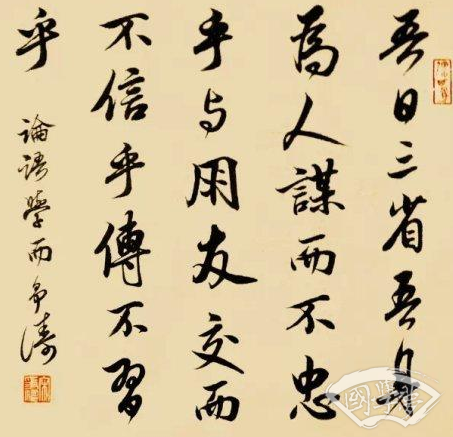 吾日三省吾身
為人謀而不忠
乎与朋友交而
不信乎傳不習
乎
論語學而
國學